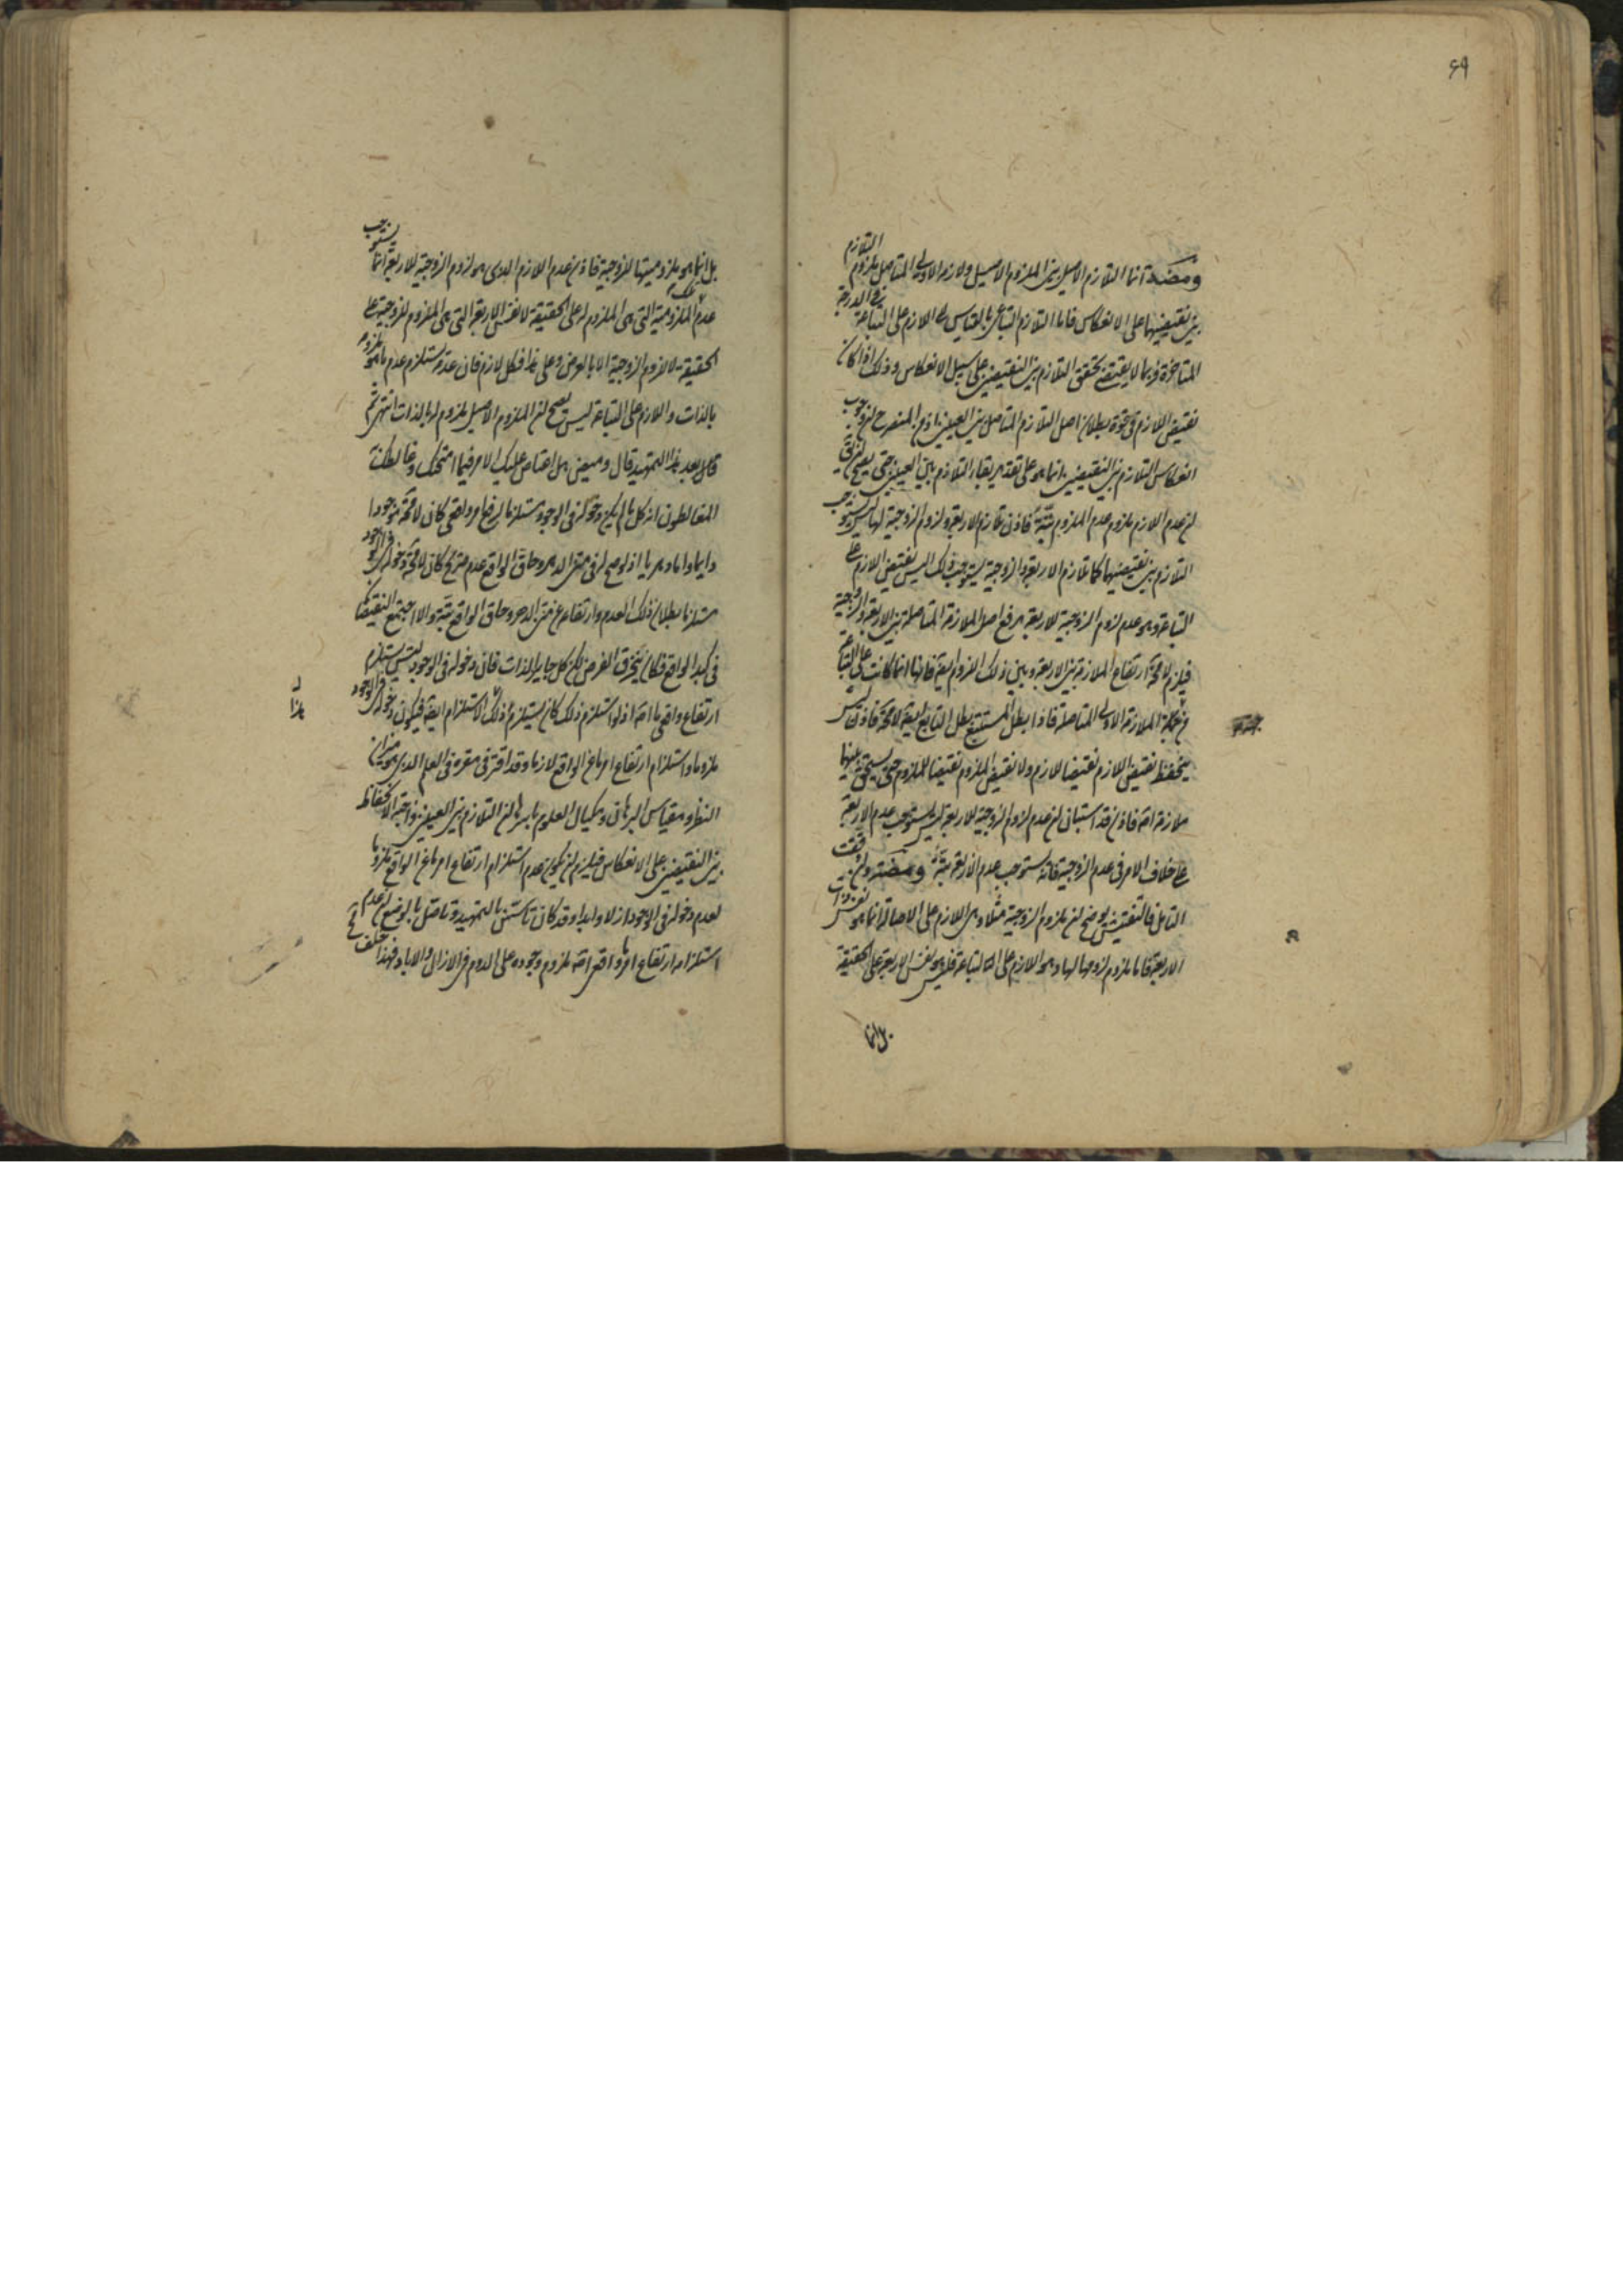 ۶۹
ومضة انما التلازم الاصيل بين الملزوم الاصيل ولازمه الاولى المتاصل ملزوم التلازم
بين نقيضيهما على الانعكاس فاما التلازم التباعى بالقياس الى اللازم على التباعة فى الدرجة
المتاخرة فربما لا يقتضى تحقق التلازم بين النقيضين على سبيل الانعكاس وذلك اذا كان
نقيض اللازم فى قوة بطلان اصل التلازم المتاصل بين العينين اذ من المنصرح ان وجوب
انعكاس التلازم بين النقيضين انما هو على تقدير بقاء التلازم بين العينين حتى يصح
ان عدم اللازم ملزوم عدم الملزوم بتة فاذن تلازم الاربعة ولزوم الزوجية لها ليس يستوجب
التلازم بين نقيضيهما كما تلازم الاربعة والزوجية يستوجب ذلك اليس نقيض اللازم على
التباعة وهو عدم لزوم الزوجية للاربعة هو رفع اصل الملازمة المتاصلة بين الاربعة والزوجية
فيلزم لا محة ارتفاع الملازمة بين الاربعة وبين ذلك اللزوم ايضا فانها انما كانت على التباعة
من جهة الملازمة الاولى المتاصلة فاذا بطل المستتبع بطل التابع ايضا لا محة فاذن ليس
ينحفظ نقيض اللازم نقيضا للازم ولا نقيض الملزوم نقيضا للملزوم حتى يستحق بينهما
ملازمة اصة فاذن قد استبان ان عدم لزوم الزوجية للاربعة ليس يستوجب عدم الاربعة
على خلاف الامر فى عدم الزوجية فانه يستوجب عدم الاربعة بتة ومضة ولئن دققت
التامل فالتفتيش يوضح ان ملزوم الزوجية مثلا وهى اللازم على الاصالة انما هو نفس ذات
الاربعة فاما ملزوم لزومها لها وهو اللازم على التباعة فليس هو نفس الاربعة على الحقيقة
بل انما
بل انما هو ملزوميتها للزوجية فاذن عدم اللازم الذى هو لزوم الزوجية للاربعة انما يستوجب
عدم الملزومية التى هى الملزوم له على الحقيقة لا نفس الاربعة التى هى الملزوم للزوجية على
الحقيقة لا للزوم الزوجية الا بالعرض وعلى هذا فكل لازم فان عدمه يستلزم عدم ما هو ملزومه
بالذات واللازم على التباعة ليس يصح ان الملزوم الاصيل ملزوم له بالذات انتهى ثم
قال بعد هذا التمهيد قال وميض هل اعتاص عليك الامر فيما امتحنك وغالطك به
المغالطون انه كل ما لم يكن دخوله فى الوجود مستلزما لرفع امر واقعى كان لا محة موجودا
دايما واما دهريا اذ لو صح له فى متن الدهر وحاق الواقع عدم صريح كان لا محة دخوله فى الوجود
مستلزما بطلان ذلك العدم وارتفاعه عن متن الدهر وحاق الواقع بتة والا اجتمع النقيضان
فى كبد الواقع فكان يخرق الفرض لكن كل جايز الذات فان دخوله فى الوجود ليس يستلزم
ارتفاع واقعى ما اصة اذ لو استلزم ذلك كان يستلزم ذلك الاستلزام ايضا فيكون دخوله فى الوجود
ملزوما واستلزام ارتفاع امر ما من الواقع لازما وقد اقتر فى مقره فى العلم الذى هو ميزان
النظر ومقياس البرهان ومكيال العلوم باسرها ان التلازم بين العينين واجب الانحفاظ
بين النقيضين على الانعكاس فيلزم ان يكون عدم استلزام ارتفاع امر ما من الواقع ملزوما
لعدم دخوله فى الوجود ازلا وابدا وقد كان تاسس بالتمهيد وتاصل بالوضع ان عدم
استلزام ارتفاع امر واقعى اصة ملزوم وجوده على الدوم فى الازال والاباد فهذا خلف